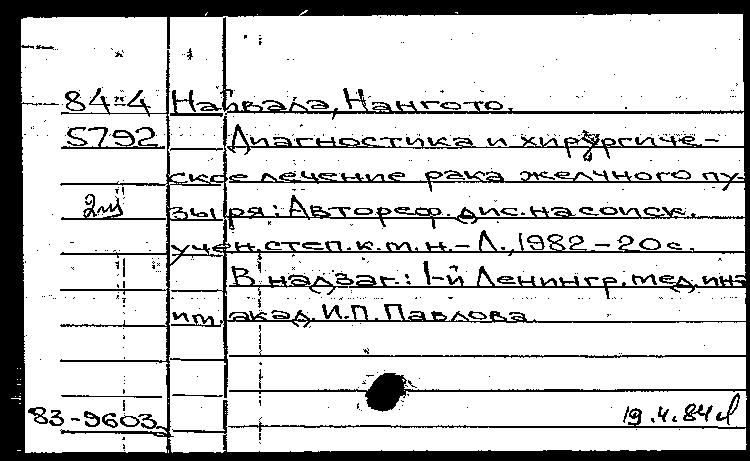 84-4 Найвала, Нангото.
5792 Диагностика и хирургиче-
ское лечение рака желчного пу-
зыря: Автореф. дис. на соиск.
учен. степ. к. м. н. - Л., 1982 - 20 с.
В надзаг.: 1-й Ленингр. мед. инс
ит. акад. И. П. Павлова.
83-9603
19.4.84